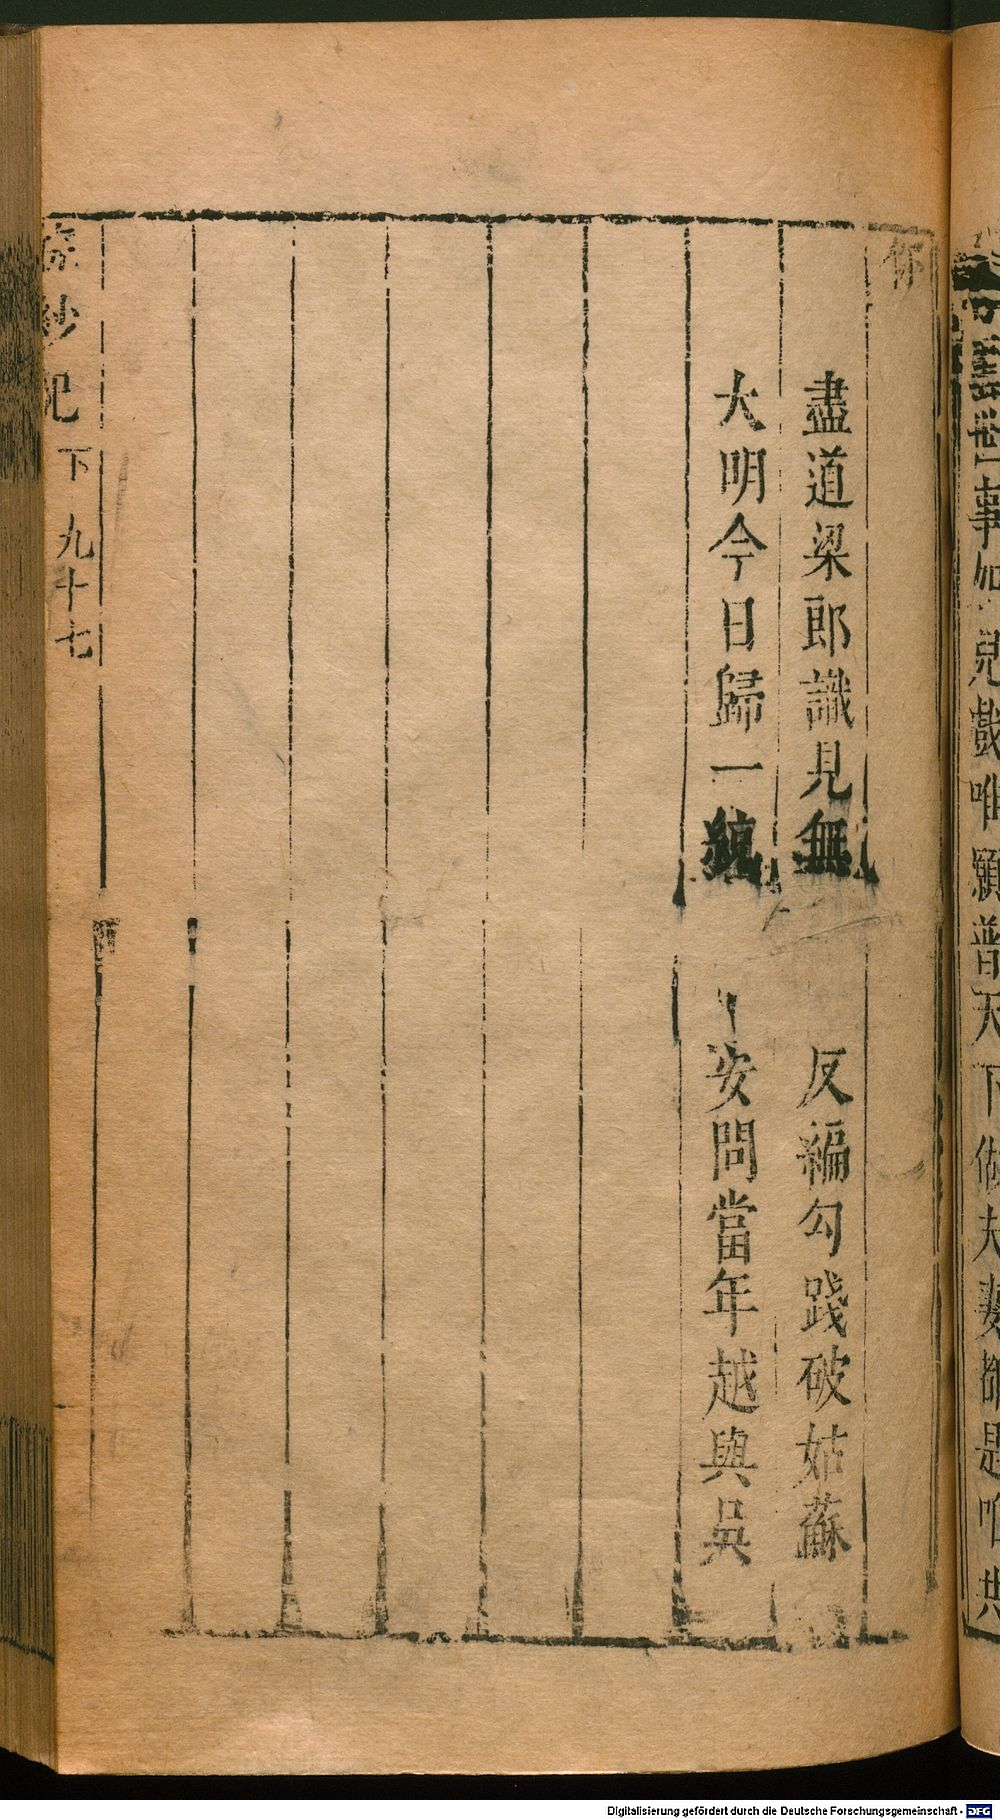 世事如兒戯唯願普天下做夫妻都是咱共
你
盡道梁郎識見無 反編勾踐破姑蘇
大明今日歸一統 安問當年越與吳
浣紗記 下 九十七
Digitalisierung gefördert durch die Deutsche Forschungsgemeinschaft - DFG